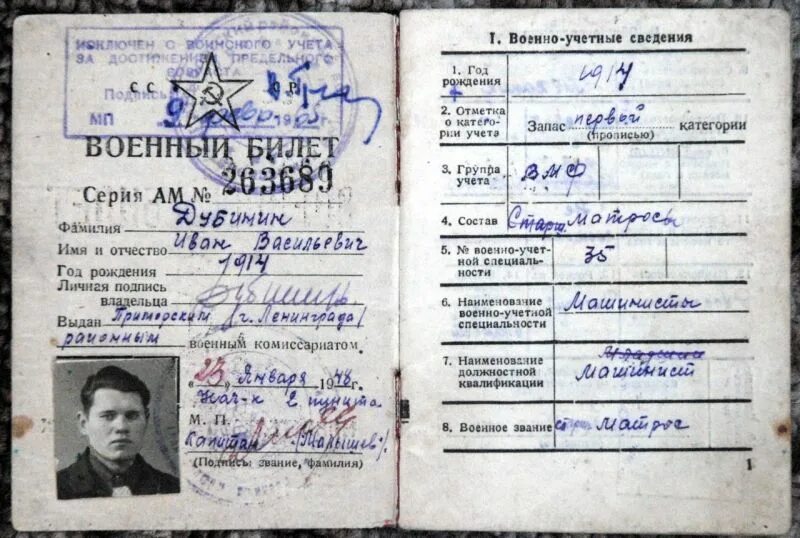 ИСКЛЮЧЕН С ВОИНСКОГО УЧЕТА
ЗА ДОСТИЖЕНИЕМ ПРЕДЕЛЬНОГО
ВОЗРАСТА
СССР
Подпись
МП 9 февр. 1965 г.
ВОЕННЫЙ БИЛЕТ
Серия АМ № 263689
Фамилия Дубинин
Имя и отчество Иван Васильевич
Год рождения 1914
Личная подпись
владельца Дубинин
Выдан Приморским /г. Ленинграда/
районным военным комиссариатом.
„23" Января 1948 г.
Нач-к 2 пункта
М. П.
Капитан (Малышев)
(Подпись, звание, фамилия)
1. Военно-учетные сведения
1. Год рождения 1914
2. Отметка о категории учета Запас первой категории
(прописью)
3. Группа учета ВМФ
4. Состав Старш. матросы
5. № военно-учетной специальности 35
6. Наименование военно-учетной специальности Машинисты
7. Наименование должностной квалификации Машинист
8. Военное звание старш. матрос
1